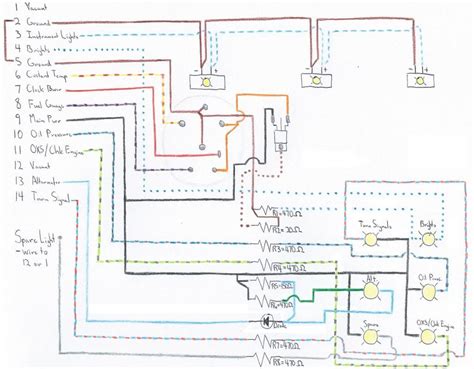 1 Vacant
2 Ground
3 Instrument Lights
4 Brights
5 Ground
6 Coolant Temp
7 Clock Power
8 Fuel Gauge
9 Main Pwr
10 Oil Pressure
11 OXS/Chk Engine
12 Vacant
13 Alternator
14 Turn Signal
Spare Light
- wire to
12 or 1
+ -
- +
- +
R1=470Ω
R2=20Ω
R3=470Ω
R4=470Ω
R6=470Ω
Diode
R7=470Ω
R8=470Ω
Turn Signals
Brights
Alt.
Oil Pres.
Spare
OXS/Chk Engine